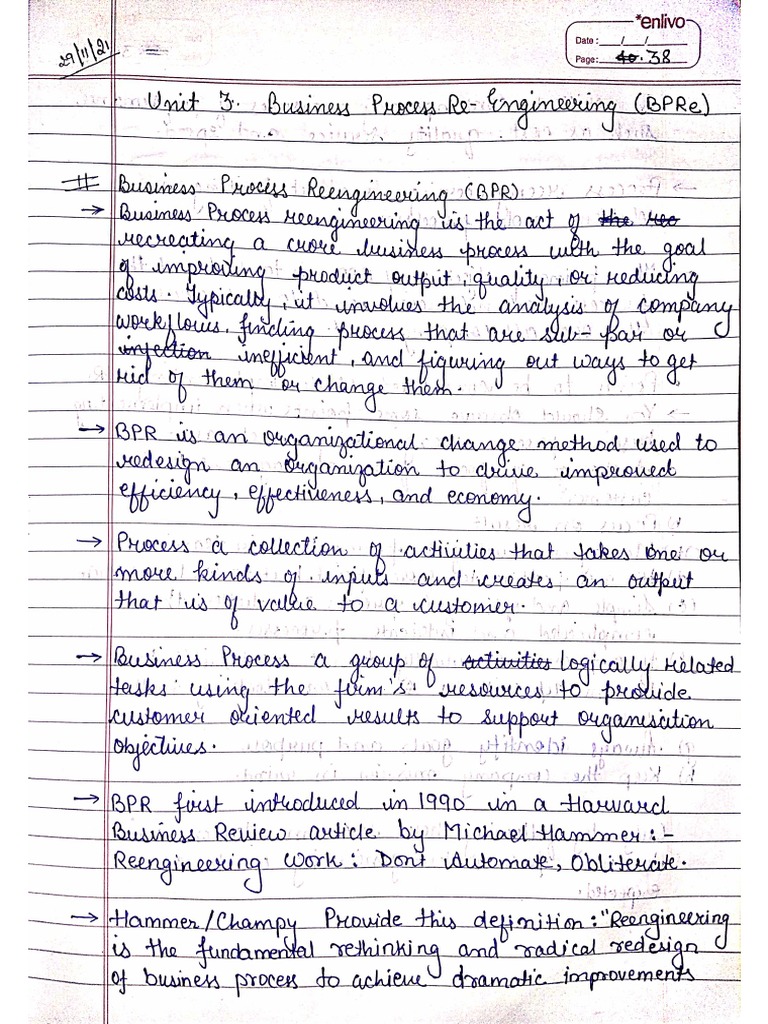 29/11/21
*enlivo
Date : __/__/__
Page: 40. 38
Unit 3. Business Process Re-Engineering (BPRe)
# Business Process Reengineering (BPR)
→ Business Process reengineering is the act of the reo
recreating a crore business process with the goal
of improving product output, quality, or reducing
costs. Typically, it involves the analysis of company
workflows, finding process that are sub-par or
infection inefficient, and figuring out ways to get
rid of them or change them.
→ BPR is an organizational change method used to
redesign an organization to drive improved
efficiency, effectiveness, and economy.
→ Process a collection of activities that takes one or
more kinds of inputs and creates an output
that is of value to a customer.
→ Business Process a group of activities logically related
tasks using the firm's. resources to provide
customer oriented results to support organisation
objectives.
→ BPR first introduced in 1990 in a Harvard
Business Review article by Michael Hammer :-
Reengineering Work : Dont Automate, Obliterate.
→ Hammer/Champy Provide this definition : "Reengineering
is the fundamental rethinking and radical redesign
of business process to achieve dramatic improvements